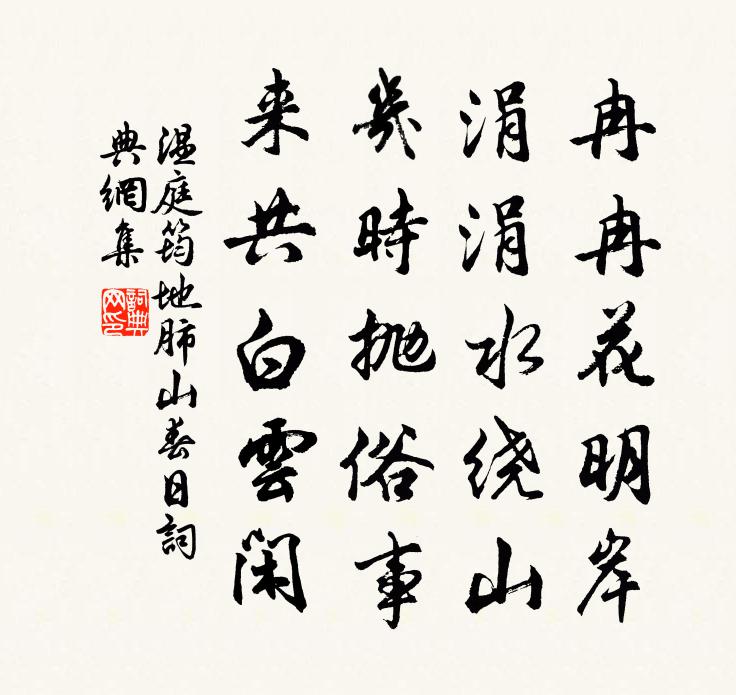 冉冉花明岸
涓涓水绕山
幾時抛俗事
来共白雲閑
温庭筠地肺山春日詞
典網集
詞典网印